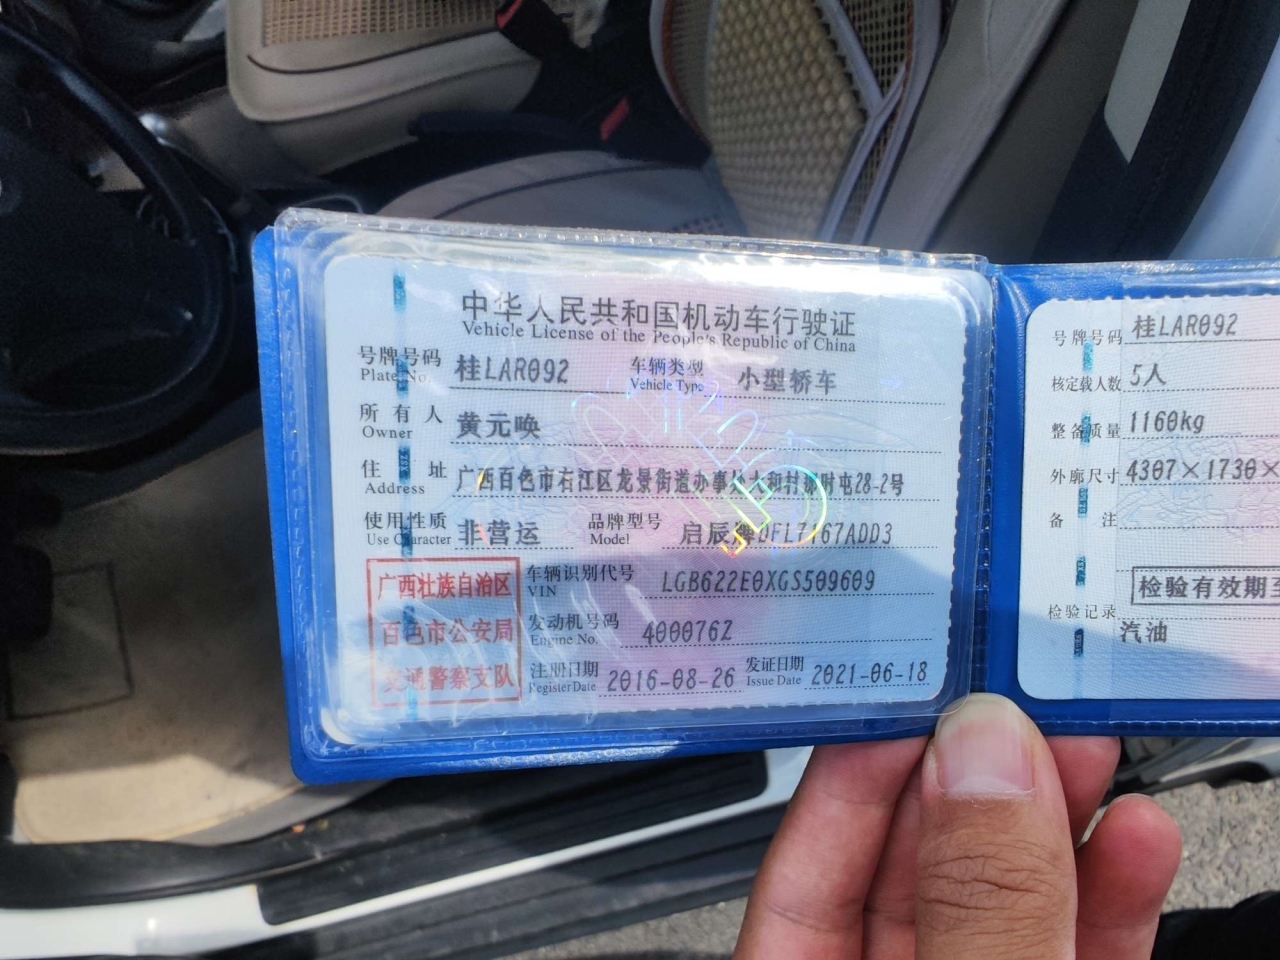 中华人民共和国机动车行驶证
Vehicle License of the People's Republic of China
号牌号码 桂LAR092 车辆类型 小型轿车
Plate No. Vehicle Type
所有人 黄元唤
Owner
住址 广西百色市右江区龙景街道办事处大和村 屯28-2号
Address
使用性质 非营运 品牌型号 启辰牌DFL7167ADD3
Use Character Model
广西壮族自治区
百色市公安局
交通警察支队
车辆识别代号 LGB622E0XGS509609
VIN
发动机号码 400076Z
Engine No.
注册日期 2016-08-26 发证日期 2021-06-18
Register Date Issue Date
号牌号码 桂LAR092
核定载人数 5人
整备质量 1160kg
外廓尺寸 4307×1730×
备注
检验有效期至
检验记录
汽油